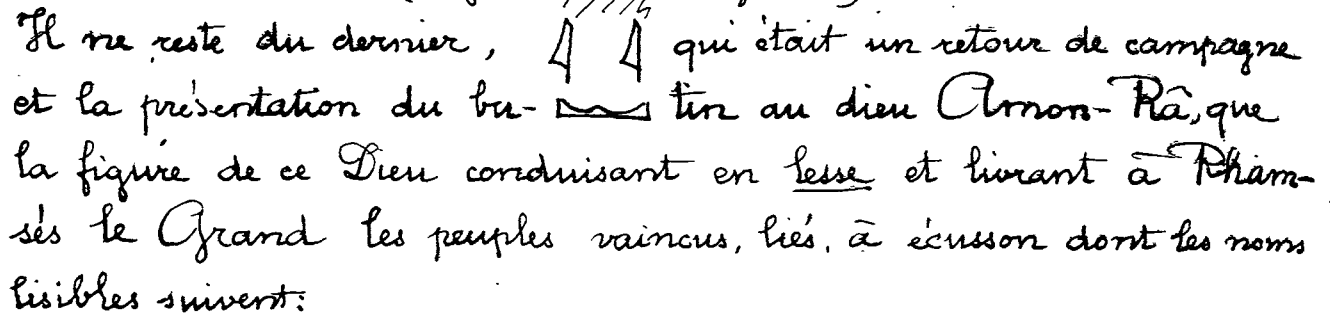 Il ne reste du dernier, qui était un retour de campagne
et la présentation du bu- tin au dieu Amon-Râ, que
la figure de ce Dieu conduisant en lesse et livrant à Rham-
sés le Grand les peuples vaincus, liés, à écusson dont les noms
lisibles suivent: